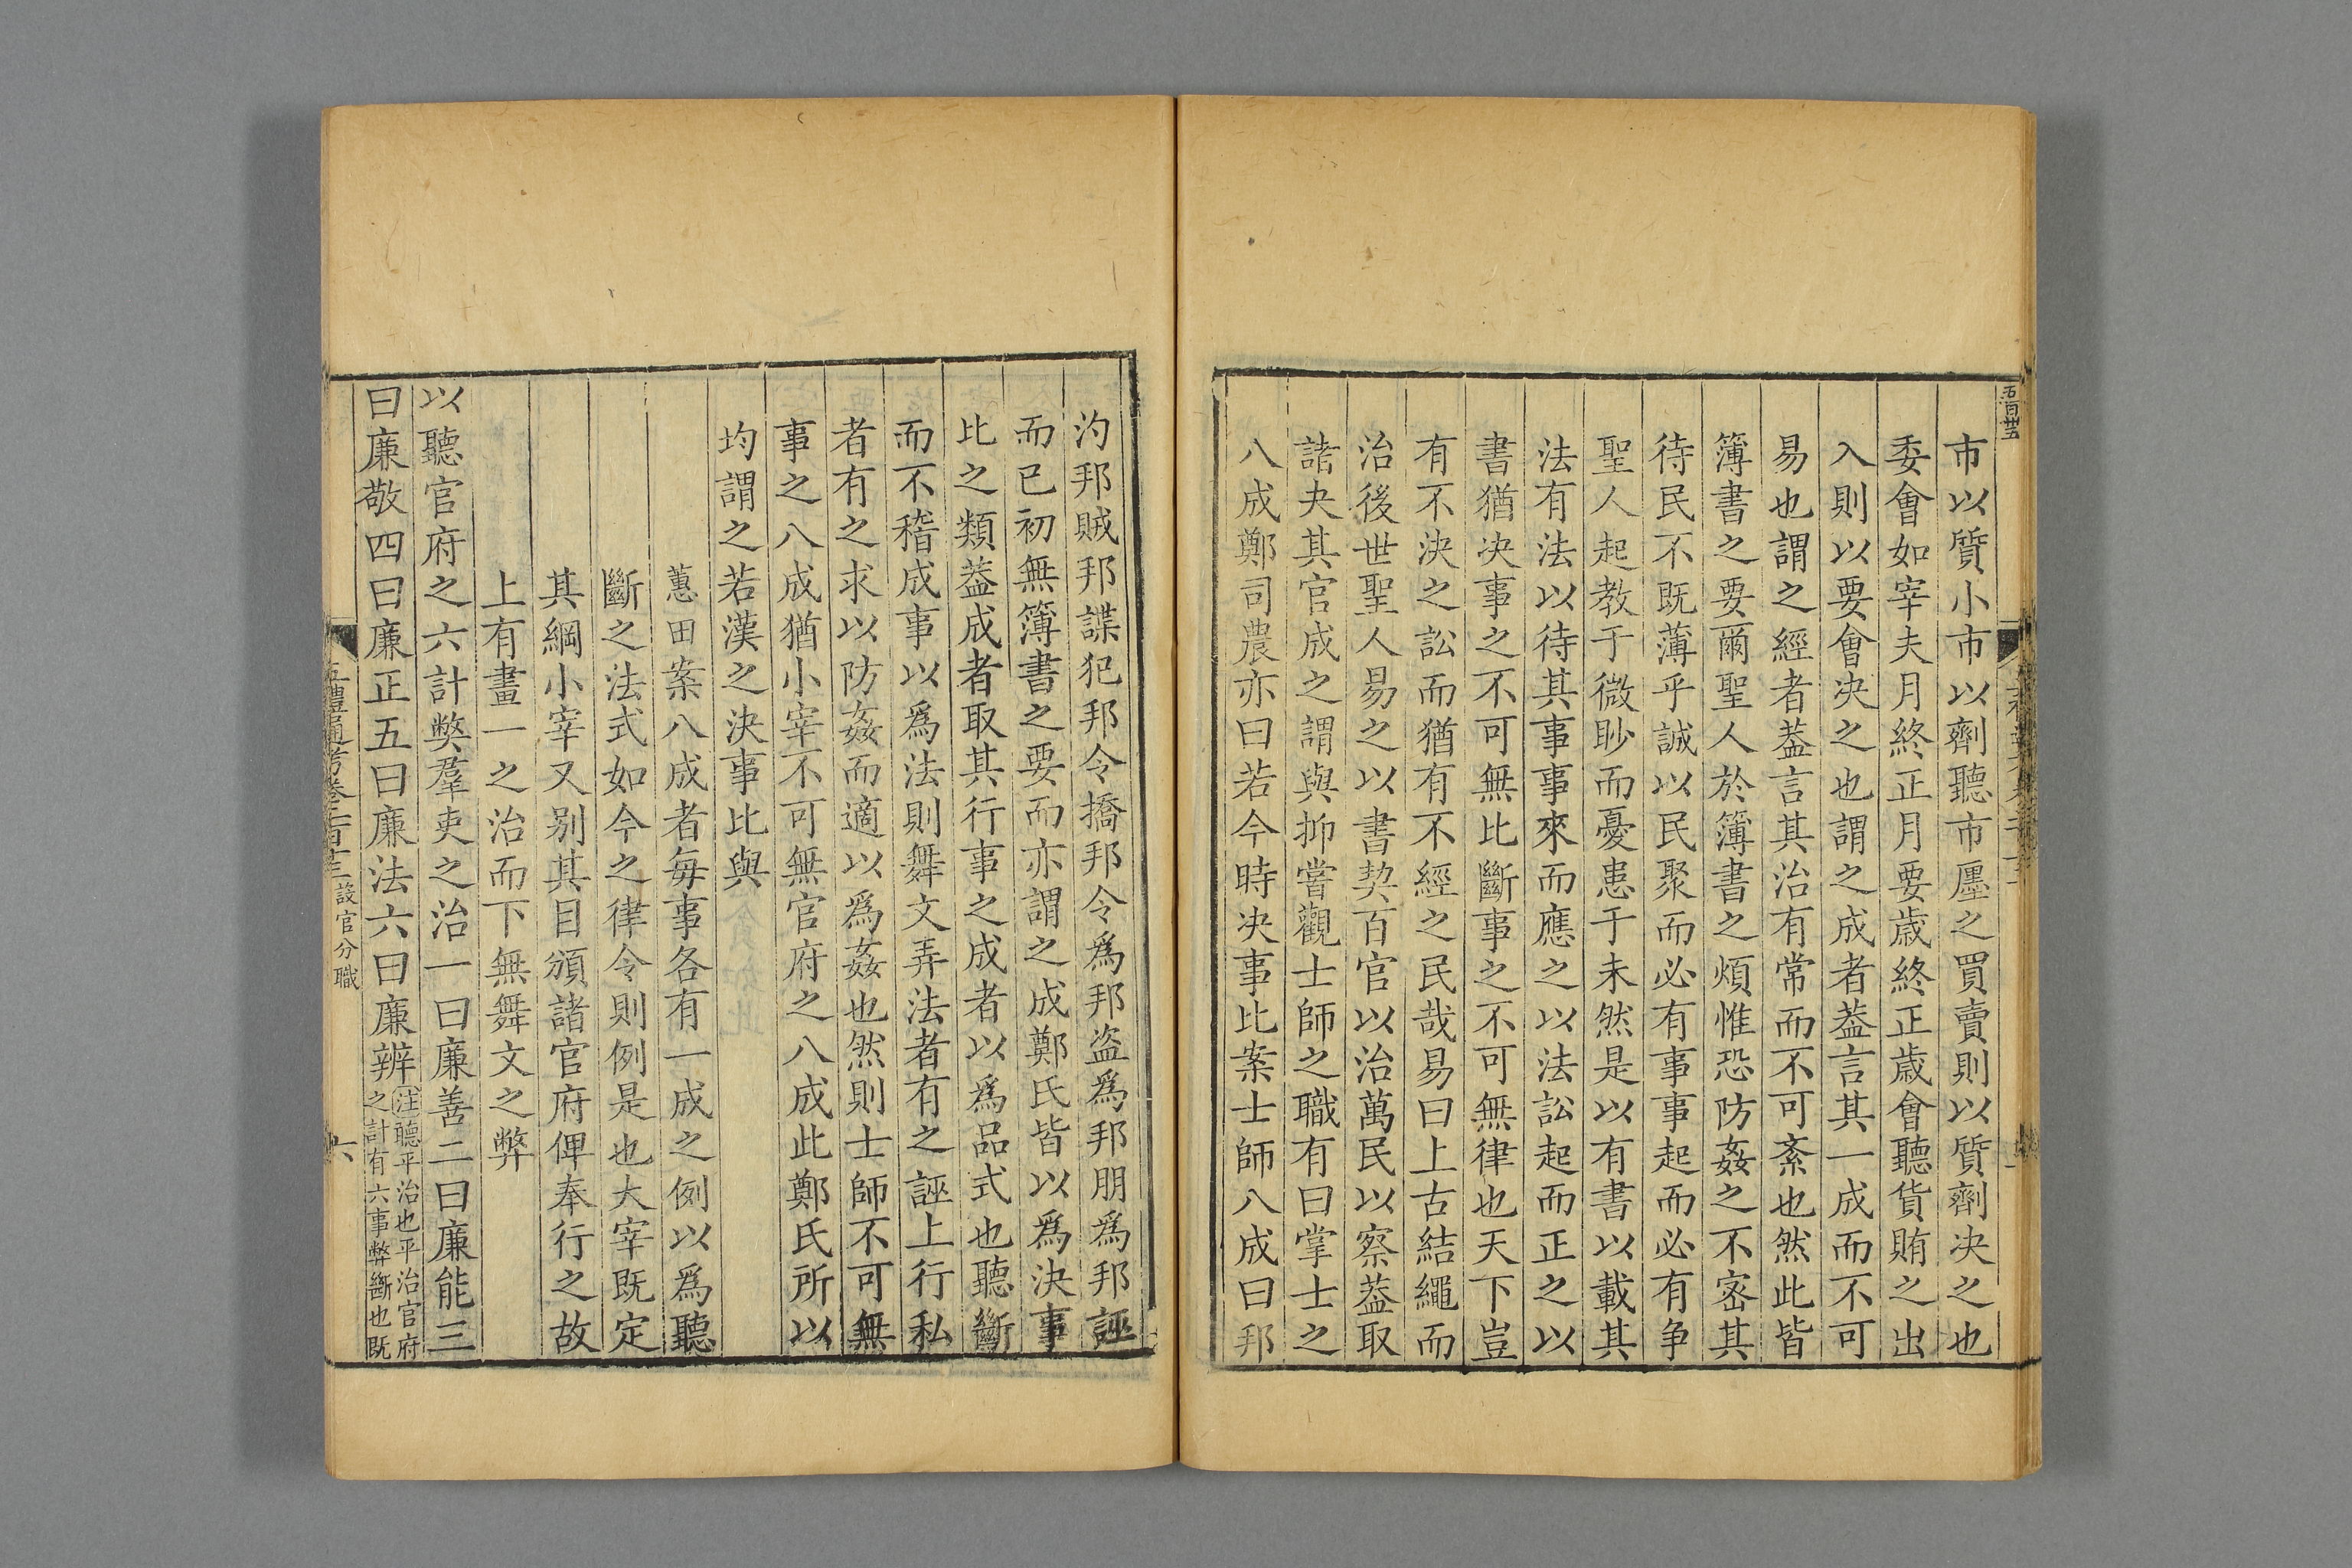 五百卅五
市以質小市以劑聽市廛之買賣則以質劑决之也
委會如宰夫月終正月要歲終正歲會聽貨賄之出
入則以要會决之也謂之成者葢言其一成而不可
易也謂之經者葢言其治有常而不可紊也然此皆
簿書之要爾聖人於簿書之煩惟恐防姦之不宻其
待民不既薄乎誠以民聚而必有事事起而必有爭
聖人起教于微眇而憂患于未然是以有書以載其
法有法以待其事事來而應之以法訟起而正之以
書猶决事之不可無比斷事之不可無律也天下豈
有不決之訟而猶有不經之民哉易曰上古結繩而
治後世聖人易之以書契百官以治萬民以察葢取
諸夬其官成之謂與抑嘗觀士師之職有曰掌士之
八成鄭司農亦曰若今時决事比案士師八成曰邦
汋邦賊邦諜犯邦令撟邦令爲邦盜爲邦朋爲邦誣
而已初無簿書之要而亦謂之成鄭氏皆以爲決事
比之類葢成者取其行事之成者以爲品式也聽斷
而不稽成事以爲法則舞文弄法者有之誣上行私
者有之求以防姦而適以爲姦也然則士師不可無
事之八成猶小宰不可無官府之八成此鄭氏所以
均謂之若漢之決事比與
蕙田案八成者每事各有一成之例以爲聽
斷之法式如今之律令則例是也大宰既定
其綱小宰又别其目頒諸官府俾奉行之故
上有畫一之治而下無舞文之弊
以聽官府之六計弊羣吏之治一曰廉善二曰廉能三
曰廉敬四曰廉正五曰廉法六曰廉辨
注聽平治也平治官府
之計有六事弊斷也既
五禮通考卷二百十三
設官分職
六